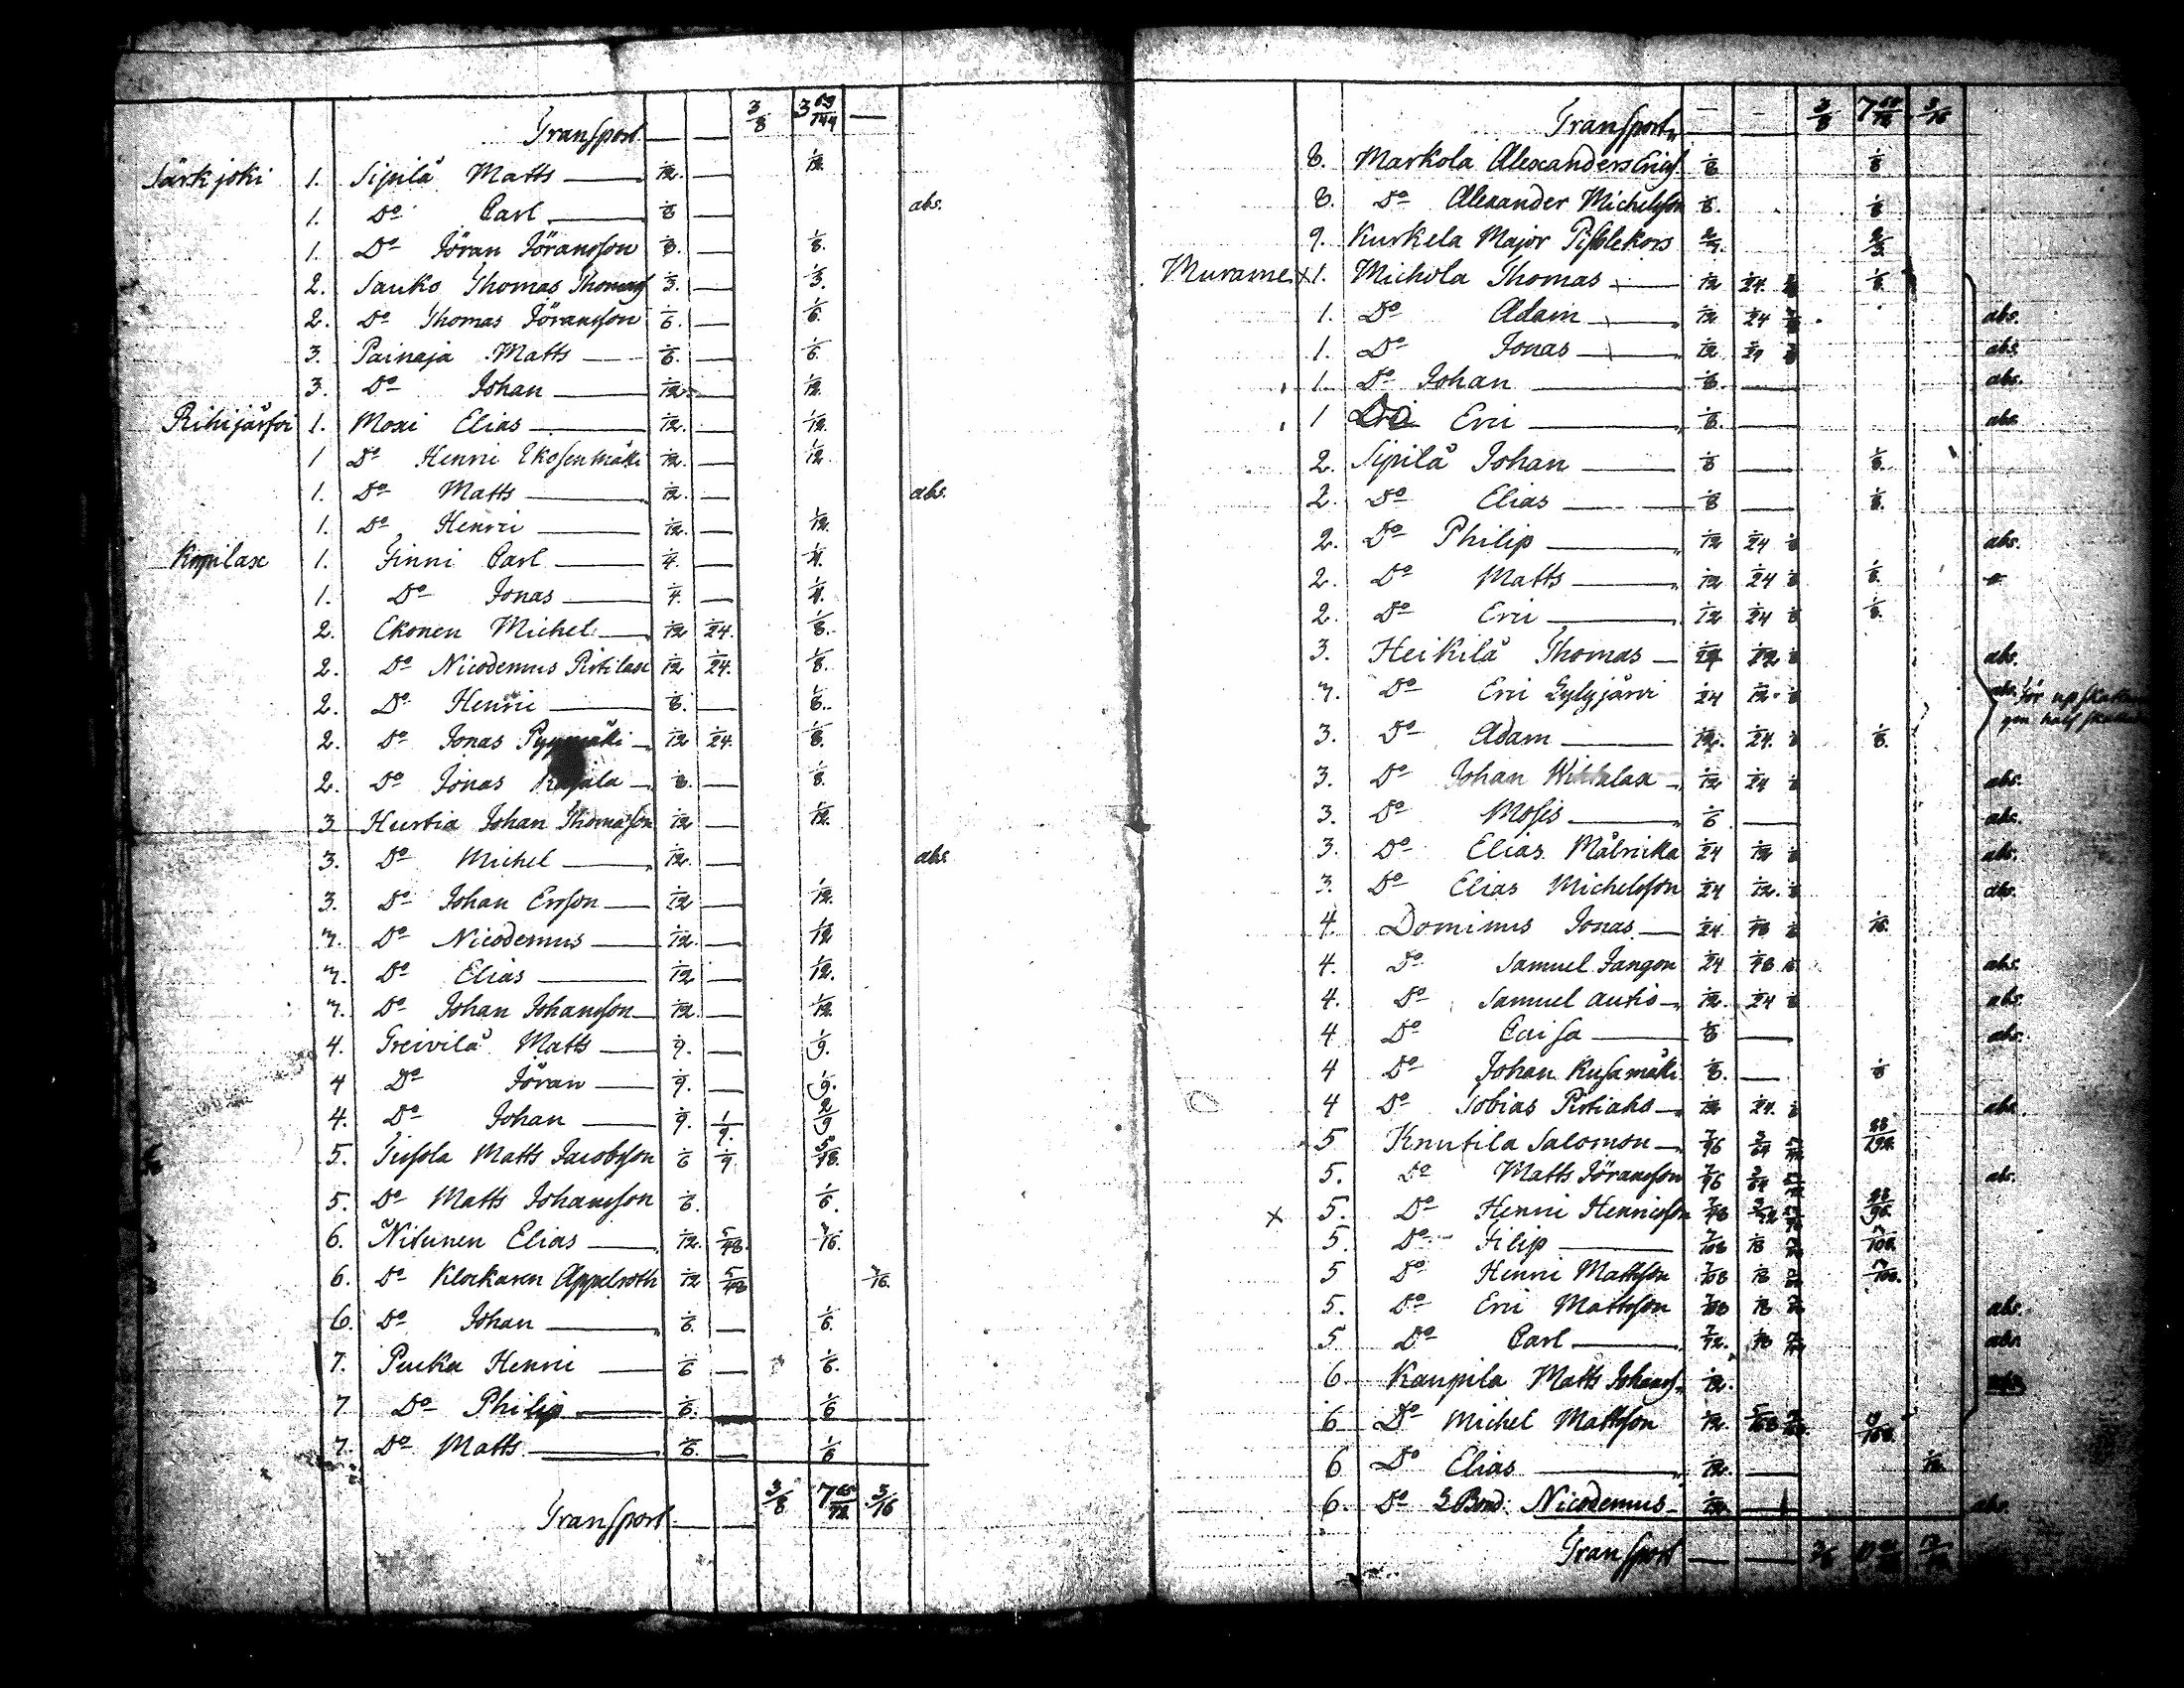 Transport — — 3/8 3 69/144 —
Särkjoki 1. Sipilä Matts — 1/12. — 1/12.
1. Do Carl — 1/8 — abs.
1. Do Jöran Jöransson 1/8. — 1/8.
2. Sauko Thomas Thomass 1/3. — 1/3.
2. Do Thomas Jöransson 1/6. — 1/6.
3. Painaja Matts — 1/6. — 1/6.
3. Do Johan — 1/12. — 1/12.
Rihijärfvi 1. Moxi Elias — 1/12. — 1/12.
1 Do Henric Ekosenmäki 1/12. — 1/12
1. Do Matts — 1/12. — abs.
1. Do Henric — 1/12. — 1/12.
Kopilax 1. Finni Carl — 1/4. 1/4.
1. Do Jonas — 1/4. — 1/4.
2. Ekonen Michel — 1/12 1/24. 1/8.
2. Do Nicodemus Pirtilax 1/12 1/24. 1/8.
2. Do Henric — 1/8. — 1/8.
2. Do Jonas 1/12 1/24. 1/8.
2. Do Jonas 1/8. — 1/8.
3 Hurtia Johan Thomasson 1/12 — 1/12.
3. Do Michel — 1/12. — abs.
3. Do Johan Ersson — 1/12 — 1/12.
3. Do Nicodemus — 1/12. — 1/12
3. Do Elias — 1/12 — 1/12.
3. Do Johan Johansson 1/12. — 1/12.
4. Greivilä Matts — 1/9. — 1/9.
4 Do Jöran — 1/9. — 1/9.
4. Do Johan — 1/9. 1/9. 2/9
5. Matts Jacobsson 1/6 1/9 5/18.
5. Do Matts Johansson 1/6. 1/6.
6. Nitunen Elias — 1/12. 5/48. 3/16.
6. Do Klockaren Appelroth 1/12 5/48 3/16.
6. Do Johan — 1/6. — 1/6.
7. Pucka Henric — 1/6 — 1/6.
7 Do Philip — 1/6. — 1/6
7. Do Matts — 1/6. — 1/6
Transport — — 3/8 7 3/16
Transport — — 3/8 7 3/16
8. Markola Alexanders 1/8 1/8
8. Do Alexander Michelsson 1/8. 1/8
9. Kurkela Major Pistolekors 2/3. 2/3.
Murame x 1. Michola Thomas — 1/12 1/24. 1/8
1. Do Adam — 1/12 1/24 abs.
1. Do Jonas — 1/12 1/24 abs.
1. Do Johan — 1/8. — abs.
1 Do Eric — 1/8. — abs.
2. Sipilä Johan — 1/8 — 1/8.
2. Do Elias — 1/8 — 1/8.
2. Do Philip — 1/12 1/24 1/8 abs.
2. Do Matts — 1/12 1/24 1/8 1/8.
2. Do Eric — 1/12 1/24 1/8 1/8.
3. Heikilä Thomas — 1/24 1/12 1/8 abs.
3. Do Eric Gylyjärvi 1/24 1/12. 1/8 abs.
3. Do Adam — 1/12. 1/24. 1/8 1/8.
3. Do Johan 1/12 1/24 1/8 abs.
3. Do Mosis — 1/8 — abs.
3. Do Elias 1/24 1/12 1/8 abs.
3. Do Elias Michelsson 1/24 1/12. 1/8 abs.
4. Dominus Jonas — 1/24 1/48 1/16.
4. Do Samuel Jangon 1/24 1/48 abs.
4. Do Samuel autio — 1/12. 1/24 1/8 abs.
4 Do Caisa — 1/8 — abs.
4 Do Johan Kusamäki 1/8. — 1/8
4 Do Tobias Pirtiaho — 1/12 1/24. 1/8 abs.
5 Knutila Salomon — 7/96
5. Do Matts Jöransson 7/96 abs.
x 5. Do Henric Henricsson 7/48
5. Do Filip — 7/108 1/18
5 Do Henric Mattsson 7/108 1/18
5. Do Eric Mattsson 1/18 abs.
5 Do Carl — 7/72. 1/18 abs.
6 Kaupila Matts Johanss. 1/12.
6 Do Michel Mattsson 1/12.
6 Do Elias — 1/12. — 1/12.
6. Do Nicodemus 1/12. — abs.
Transport — — 3/8